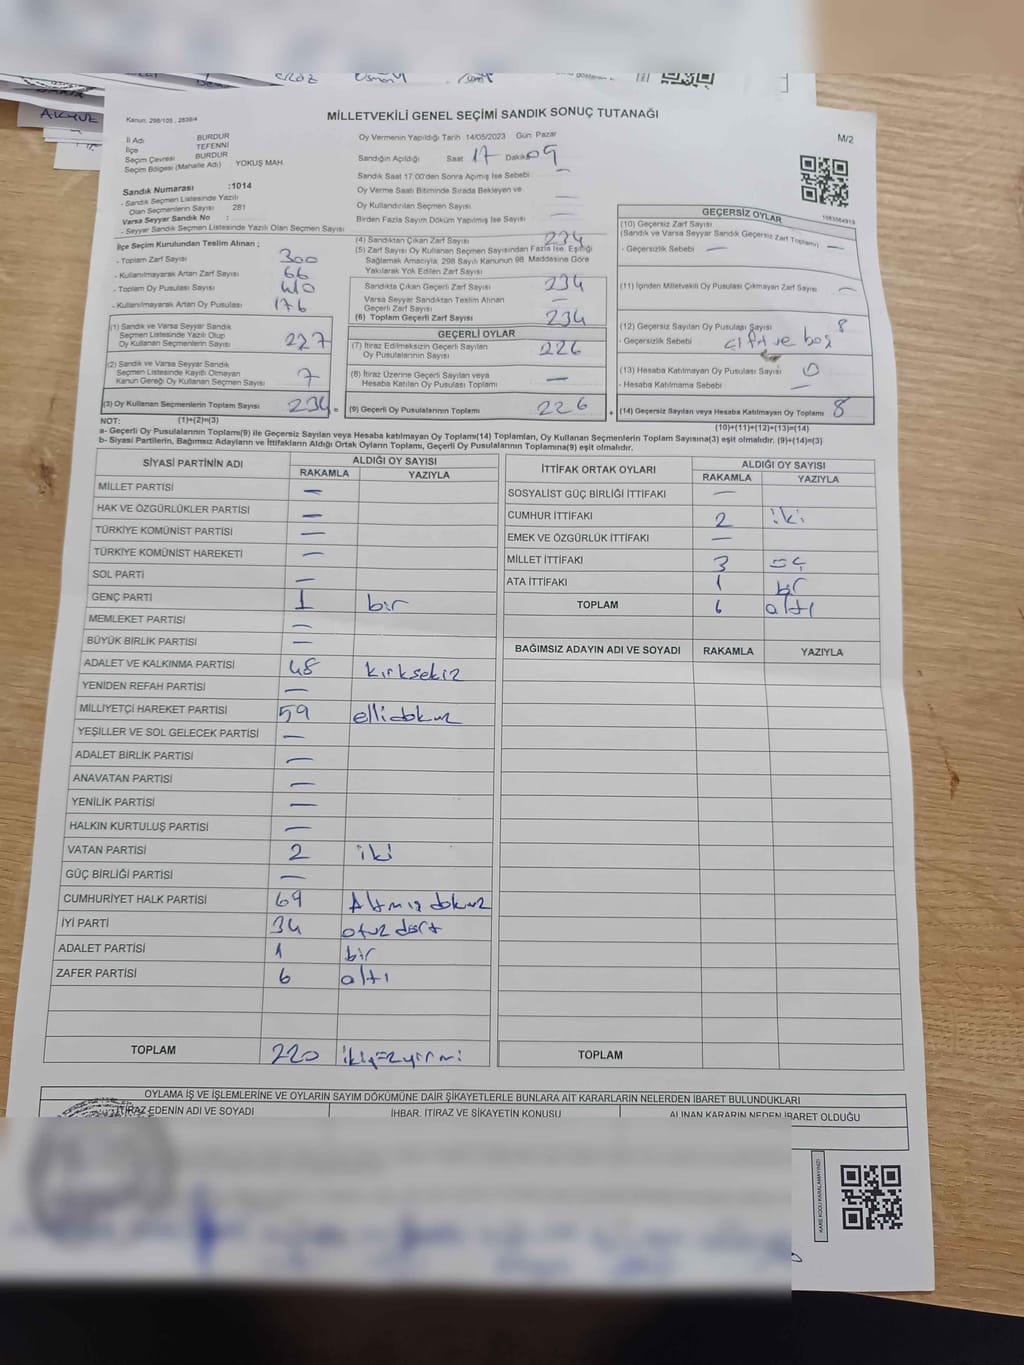 MİLLETVEKİLİ GENEL SEÇİMİ SANDIK SONUÇ TUTANAĞI
Kanun, 298/105 , 2839/4
M/2
İl Adı BURDUR
İlçe TEFENNİ
Seçim Çevresi BURDUR
Seçim Bölgesi (Mahalle Adı) YOKUŞ MAH.
Sandık Numarası :1014
- Sandık Seçmen Listesinde Yazılı
Olan Seçmenlerin Sayısı 281
Varsa Seyyar Sandık No :
- Seyyar Sandık Seçmen Listesinde Yazılı Olan Seçmen Sayısı
Oy Vermenin Yapıldığı Tarih 14/05/2023 Gün Pazar
Sandığın Açıldığı Saat 17 Dakika 09
Sandık Saat 17:00'den Sonra Açımış İse Sebebi —
Oy Verme Saati Bitiminde Sırada Bekleyen ve
Oy Kullandırılan Seçmen Sayısı —
Birden Fazla Sayım Döküm Yapılmış İse Sayısı —
İlçe Seçim Kurulundan Teslim Alınan ;
- Toplam Zarf Sayısı 300
- Kullanılmayarak Artan Zarf Sayısı 66
- Toplam Oy Pusulası 410
- Kullanılmayarak Artan Oy Pusulası 176
(1) Sandık ve Varsa Seyyar Sandık
Seçmen Listesinde Yazılı Olup
Oy Kullanan Seçmenlerin Sayısı 227
(2) Sandık ve Varsa Seyyar Sandık
Seçmen Listesinde Kayıtlı Olmayan
Kanun Gereği Oy Kullanan Seçmen Sayısı 7
(3) Oy Kullanan Seçmenlerin Toplam Sayısı 234 =
(1)+(2)=(3)
(4) Sandıktan Çıkan Zarf Sayısı 234
(5) Zarf Sayısı Oy Kullanan Seçmen Sayısından Fazla İse, Eşitliği
Sağlamak Amacıyla, 298 Sayılı Kanunun 98. Maddesine Göre
Yakılarak Yok Edilen Zarf Sayısı —
Sandıkta Çıkan Geçerli Zarf Sayısı 234
Varsa Seyyar Sandıktan Teslim Alınan
Geçerli Zarf Sayısı —
(6) Toplam Geçerli Zarf Sayısı 234
GEÇERLİ OYLAR
(7) İtiraz Edilmeksizin Geçerli Sayılan
Oy Pusulalarının Sayısı 226
(8) İtiraz Üzerine Geçerli Sayılan veya
Hesaba Katılan Oy Pusulası Toplamı —
(9) Geçerli Oy Pusulalarının Toplamı 226 +
GEÇERSİZ OYLAR
(10) Geçersiz Zarf Sayısı
(Sandık ve Varsa Seyyar Sandık Geçersiz Zarf Toplamı) —
- Geçersizlik Sebebi —
(11) İçinden Milletvekili Oy Pusulası Çıkmayan Zarf Sayısı —
(12) Geçersiz Sayılan Oy Pusulası Sayısı 8
- Geçersizlik Sebebi çift ve boş
(13) Hesaba Katılmayan Oy Pusulası Sayısı 0
- Hesaba Katılmama Sebebi —
(14) Geçersiz Sayılan veya Hesaba Katılmayan Oy Toplamı 8
(10)+(11)+(12)+(13)=(14)
NOT:
a- Geçerli Oy Pusulalarının Toplamı(9) ile Geçersiz Sayılan veya Hesaba katılmayan Oy Toplamı(14) Toplamları, Oy Kullanan Seçmenlerin Toplam Sayısına(3) eşit olmalıdır. (9)+(14)=(3)
b- Siyasi Partilerin, Bağımsız Adayların ve İttifakların Aldığı Ortak Oyların Toplamı, Geçerli Oy Pusulalarının Toplamına(9) eşit olmalıdır.
SİYASİ PARTİNİN ADI ALDIĞI OY SAYISI
RAKAMLA YAZIYLA
MİLLET PARTİSİ —
HAK VE ÖZGÜRLÜKLER PARTİSİ —
TÜRKİYE KOMÜNİST PARTİSİ —
TÜRKİYE KOMÜNİST HAREKETİ —
SOL PARTİ —
GENÇ PARTİ 1 bir
MEMLEKET PARTİSİ —
BÜYÜK BİRLİK PARTİSİ —
ADALET VE KALKINMA PARTİSİ 48 kırksekiz
YENİDEN REFAH PARTİSİ —
MİLLİYETÇİ HAREKET PARTİSİ 59 ellidokuz
YEŞİLLER VE SOL GELECEK PARTİSİ —
ADALET BİRLİK PARTİSİ —
ANAVATAN PARTİSİ —
YENİLİK PARTİSİ —
HALKIN KURTULUŞ PARTİSİ —
VATAN PARTİSİ 2 iki
GÜÇ BİRLİĞİ PARTİSİ —
CUMHURİYET HALK PARTİSİ 69 Altmış dokuz
İYİ PARTİ 34 otuz dört
ADALET PARTİSİ 1 bir
ZAFER PARTİSİ 6 altı
TOPLAM 220 ikiyüzyirmi
İTTİFAK ORTAK OYLARI ALDIĞI OY SAYISI
RAKAMLA YAZIYLA
SOSYALİST GÜÇ BİRLİĞİ İTTİFAKI —
CUMHUR İTTİFAKI 2 iki
EMEK VE ÖZGÜRLÜK İTTİFAKI —
MİLLET İTTİFAKI 3 üç
ATA İTTİFAKI 1 bir
TOPLAM 6 altı
BAĞIMSIZ ADAYIN ADI VE SOYADI RAKAMLA YAZIYLA
TOPLAM
OYLAMA İŞ VE İŞLEMLERİNE VE OYLARIN SAYIM DÖKÜMÜNE DAİR ŞİKAYETLERLE BUNLARA AİT KARARLARIN NELERDEN İBARET BULUNDUKLARI
İTİRAZ EDENİN ADI VE SOYADI İHBAR, İTİRAZ VE ŞİKAYETİN KONUSU ALINAN KARARIN NEDEN İBARET OLDUĞU
KARE KODU KARALAMAYINIZ!